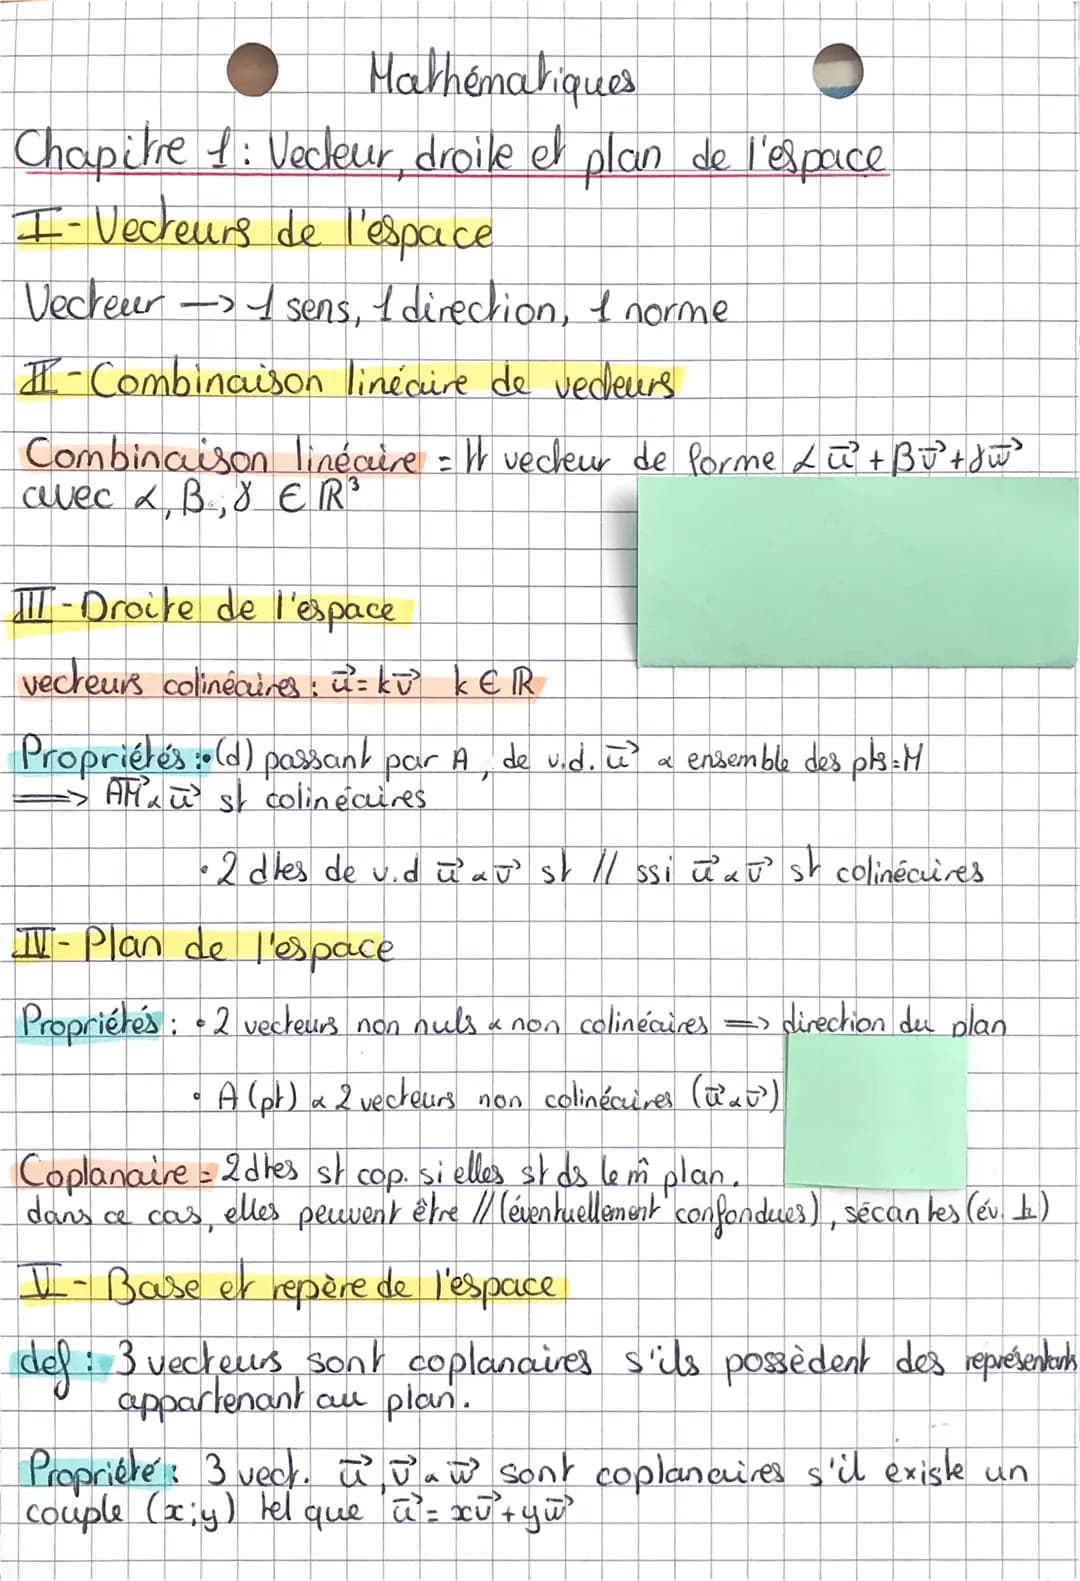 Mathématiques
Chapitre 1 : Vecteur, droite et plan de l'espace
I - Vecteurs de l'espace
Vecteur —> 1 sens, 1 direction, 1 norme
II - Combinaison linéaire de vecteurs
Combinaison linéaire = tt vecteur de forme α u⃗ + βv⃗ + γw⃗
avec α, β, γ ∈ ℝ³
III - Droite de l'espace
vecteurs colinéaires : u⃗ = kv⃗ k ∈ ℝ
Propriétés : • (d) passant par A, de v.d. u⃗ & ensemble des pts : M
==> AM⃗ & u⃗ st colinéaires
• 2 dtes de v.d u⃗ & v⃗ st // ssi u⃗ & v⃗ st colinéaires
IV - Plan de l'espace
Propriétés : • 2 vecteurs non nuls & non colinéaires ==> direction du plan
• A (pt) & 2 vecteurs non colinéaires (u⃗ & v⃗)
Coplanaire = 2 dtes st cop. si elles st ds le m̂ plan.
dans ce cas, elles peuvent être // (éventuellement confondues), sécantes (év. ⊥)
V - Base et repère de l'espace
def : 3 vecteurs sont coplanaires s'ils possèdent des représentants
appartenant au plan.
Propriété : 3 vect. u⃗, v⃗ & w⃗ sont coplanaires s'il existe un
couple (x;y) tel que u⃗ = xv⃗ + yw⃗